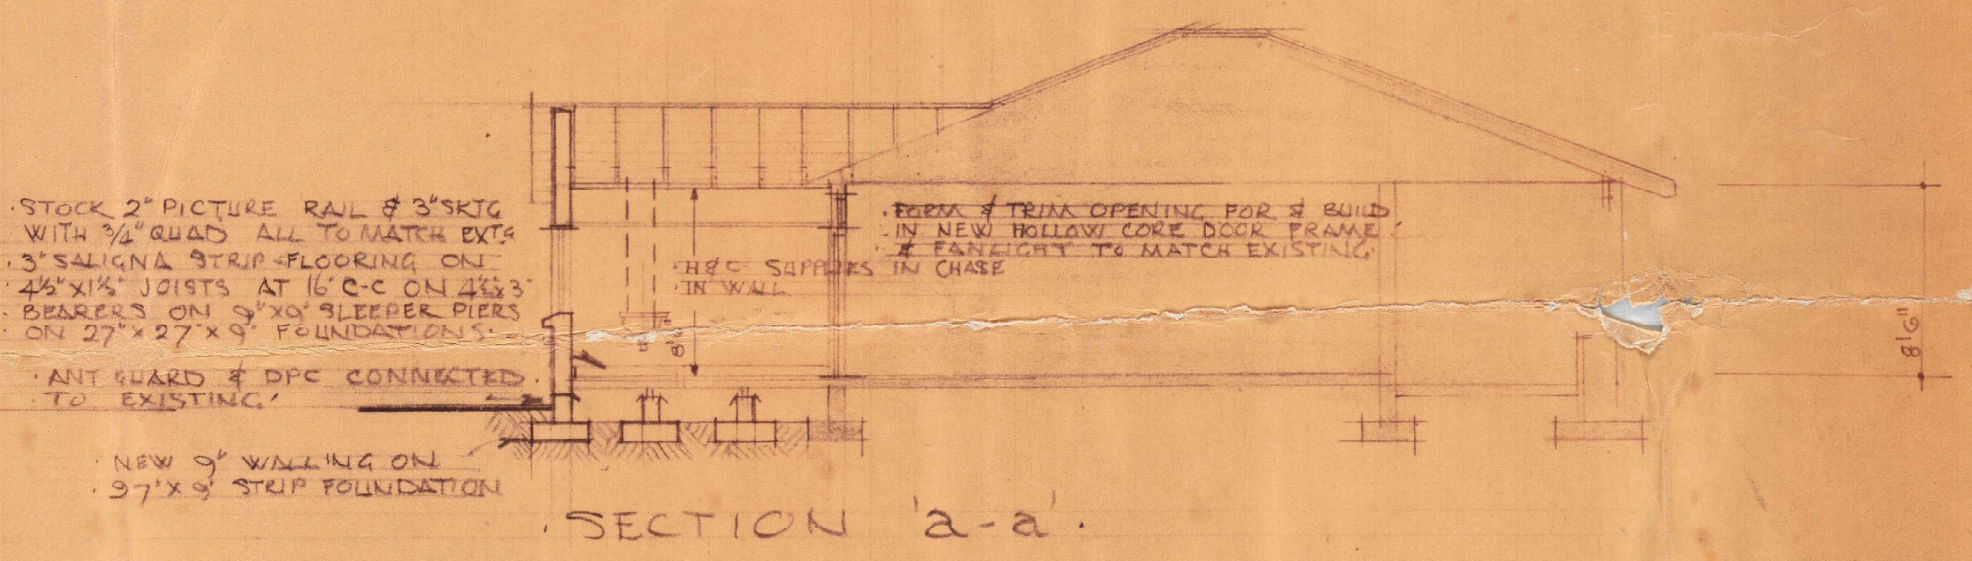 · STOCK 2" PICTURE RAIL & 3" SKTG
WITH 3/4" QUAD ALL TO MATCH EXTG
· 3" SALIGNA STRIP FLOORING ON
· 4½" X 1½" JOISTS AT 16" C-C ON 4½" X 3"
· BEARERS ON 9" X 9" SLEEPER PIERS
· ON 27" X 27" X 9" FOUNDATIONS.
· ANT GUARD & DPC CONNECTED
· TO EXISTING.
· NEW 9" WALLING ON
· 27" X 9" STRIP FOUNDATION
· FORM & TRIM OPENING FOR & BUILD
· IN NEW HOLLOW CORE DOOR FRAME
· & FANLIGHT TO MATCH EXISTING.
· H&C SUPPLIES IN CHASE
· IN WALL
8'6"
· SECTION 'a-a' ·